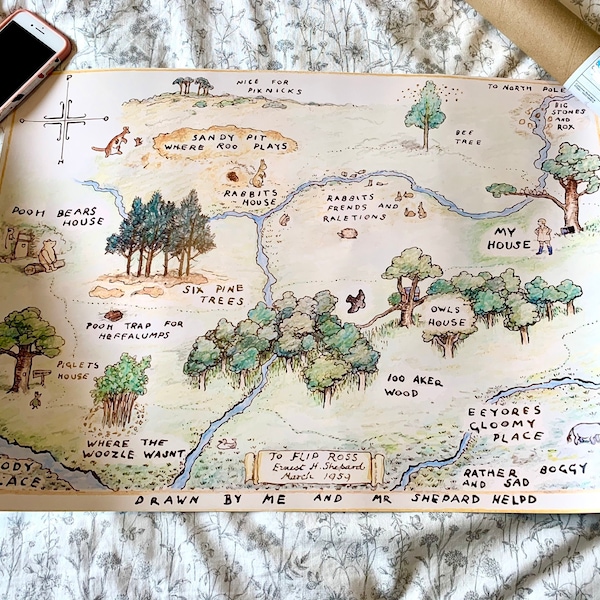 NICE FOR
PIKNICKS
TO NORTH POLE
BIG
STONES
AND
ROX
SANDY PIT
WHERE ROO PLAYS
BEE
TREE
RABBITS
HOUSE
RABBITS
FRENDS AND
RALETIONS
POOH BEARS
HOUSE
MY
HOUSE
SIX PINE
TREES
OWLS
HOUSE
POOH TRAP FOR
HEFFALUMPS
PIGLETS
HOUSE
100 AKER
WOOD
EEYORES
GLOOMY
PLACE
WHERE THE
WOOZLE WASNT
TO FLIP ROSS
Ernest H. Shepard
March 1959
RATHER BOGGY
AND SAD
ODY
ACE
DRAWN BY ME AND MR SHEPARD HELPD